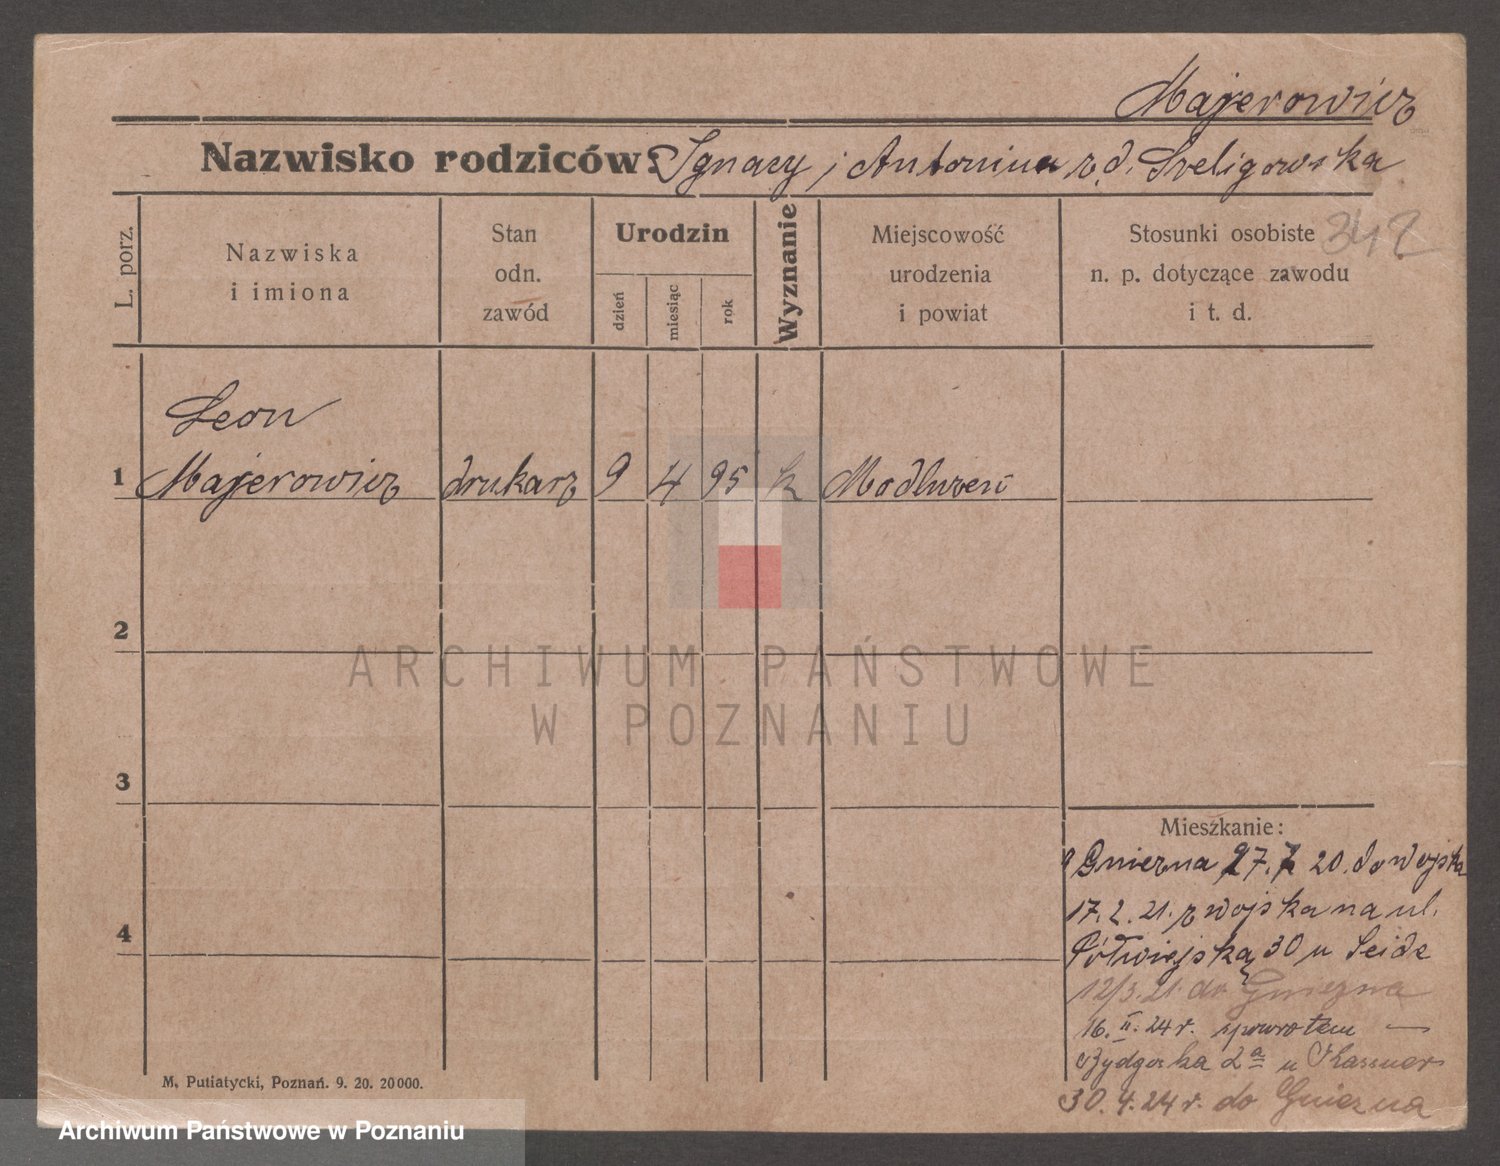 Majerowicz
Nazwisko rodziców: Ignacy i Antonina z d. Sveligowska
342
L. porz.
Nazwiska
i imiona
Stan
odn.
zawód
Urodzin
dzień
miesiąc
rok
Wyznanie
Miejscowość
urodzenia
i powiat
Stosunki osobiste
n. p. dotyczące zawodu
i t. d.
Leon
1 Majerowicz drukarz 9 4 95 k Modluszeń
2
3
4
ARCHIWUM PAŃSTWOWE
W POZNANIU
Mieszkanie:
Gniezna 27. 7. 20. do wojska
17. 2. 21. z wojska na ul.
Półwiejską 30 u Seide
12/3. 21. do Gniezna
16. II. 24 r. spowrotem —
Bydgoska 2a u Kassner
30. 4. 24 r. do Gniezna
M. Putiatycki, Poznań. 9. 20. 20000.
Archiwum Państwowe w Poznaniu